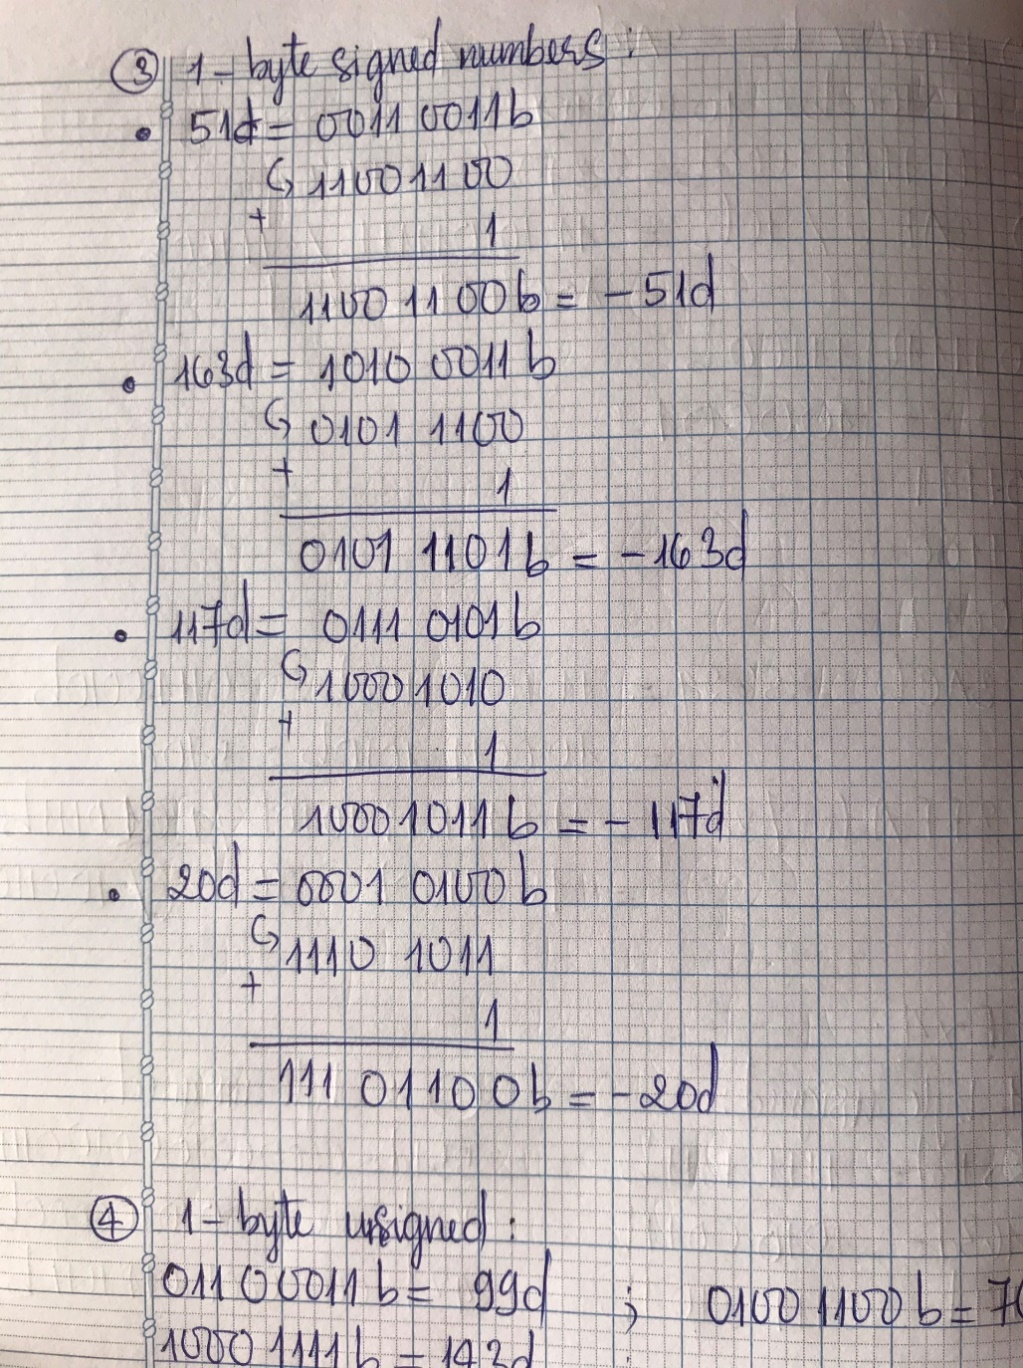 ③ 1-byte signed numbers:
• 51d = 0011 0011b
↳ 11001100
+
1
11001100b = -51d
• 163d = 1010 0011b
↳ 0101 1100
+
1
0101 1101b = -163d
• 117d = 0111 0101b
↳ 10001010
+
1
10001011b = -117d
• 20d = 0001 0100b
↳ 1110 1011
+
1
111 01100b = -20d
④ 1-byte unsigned:
01100011b = 99d ; 01001100b = 76
10001111b = 143d